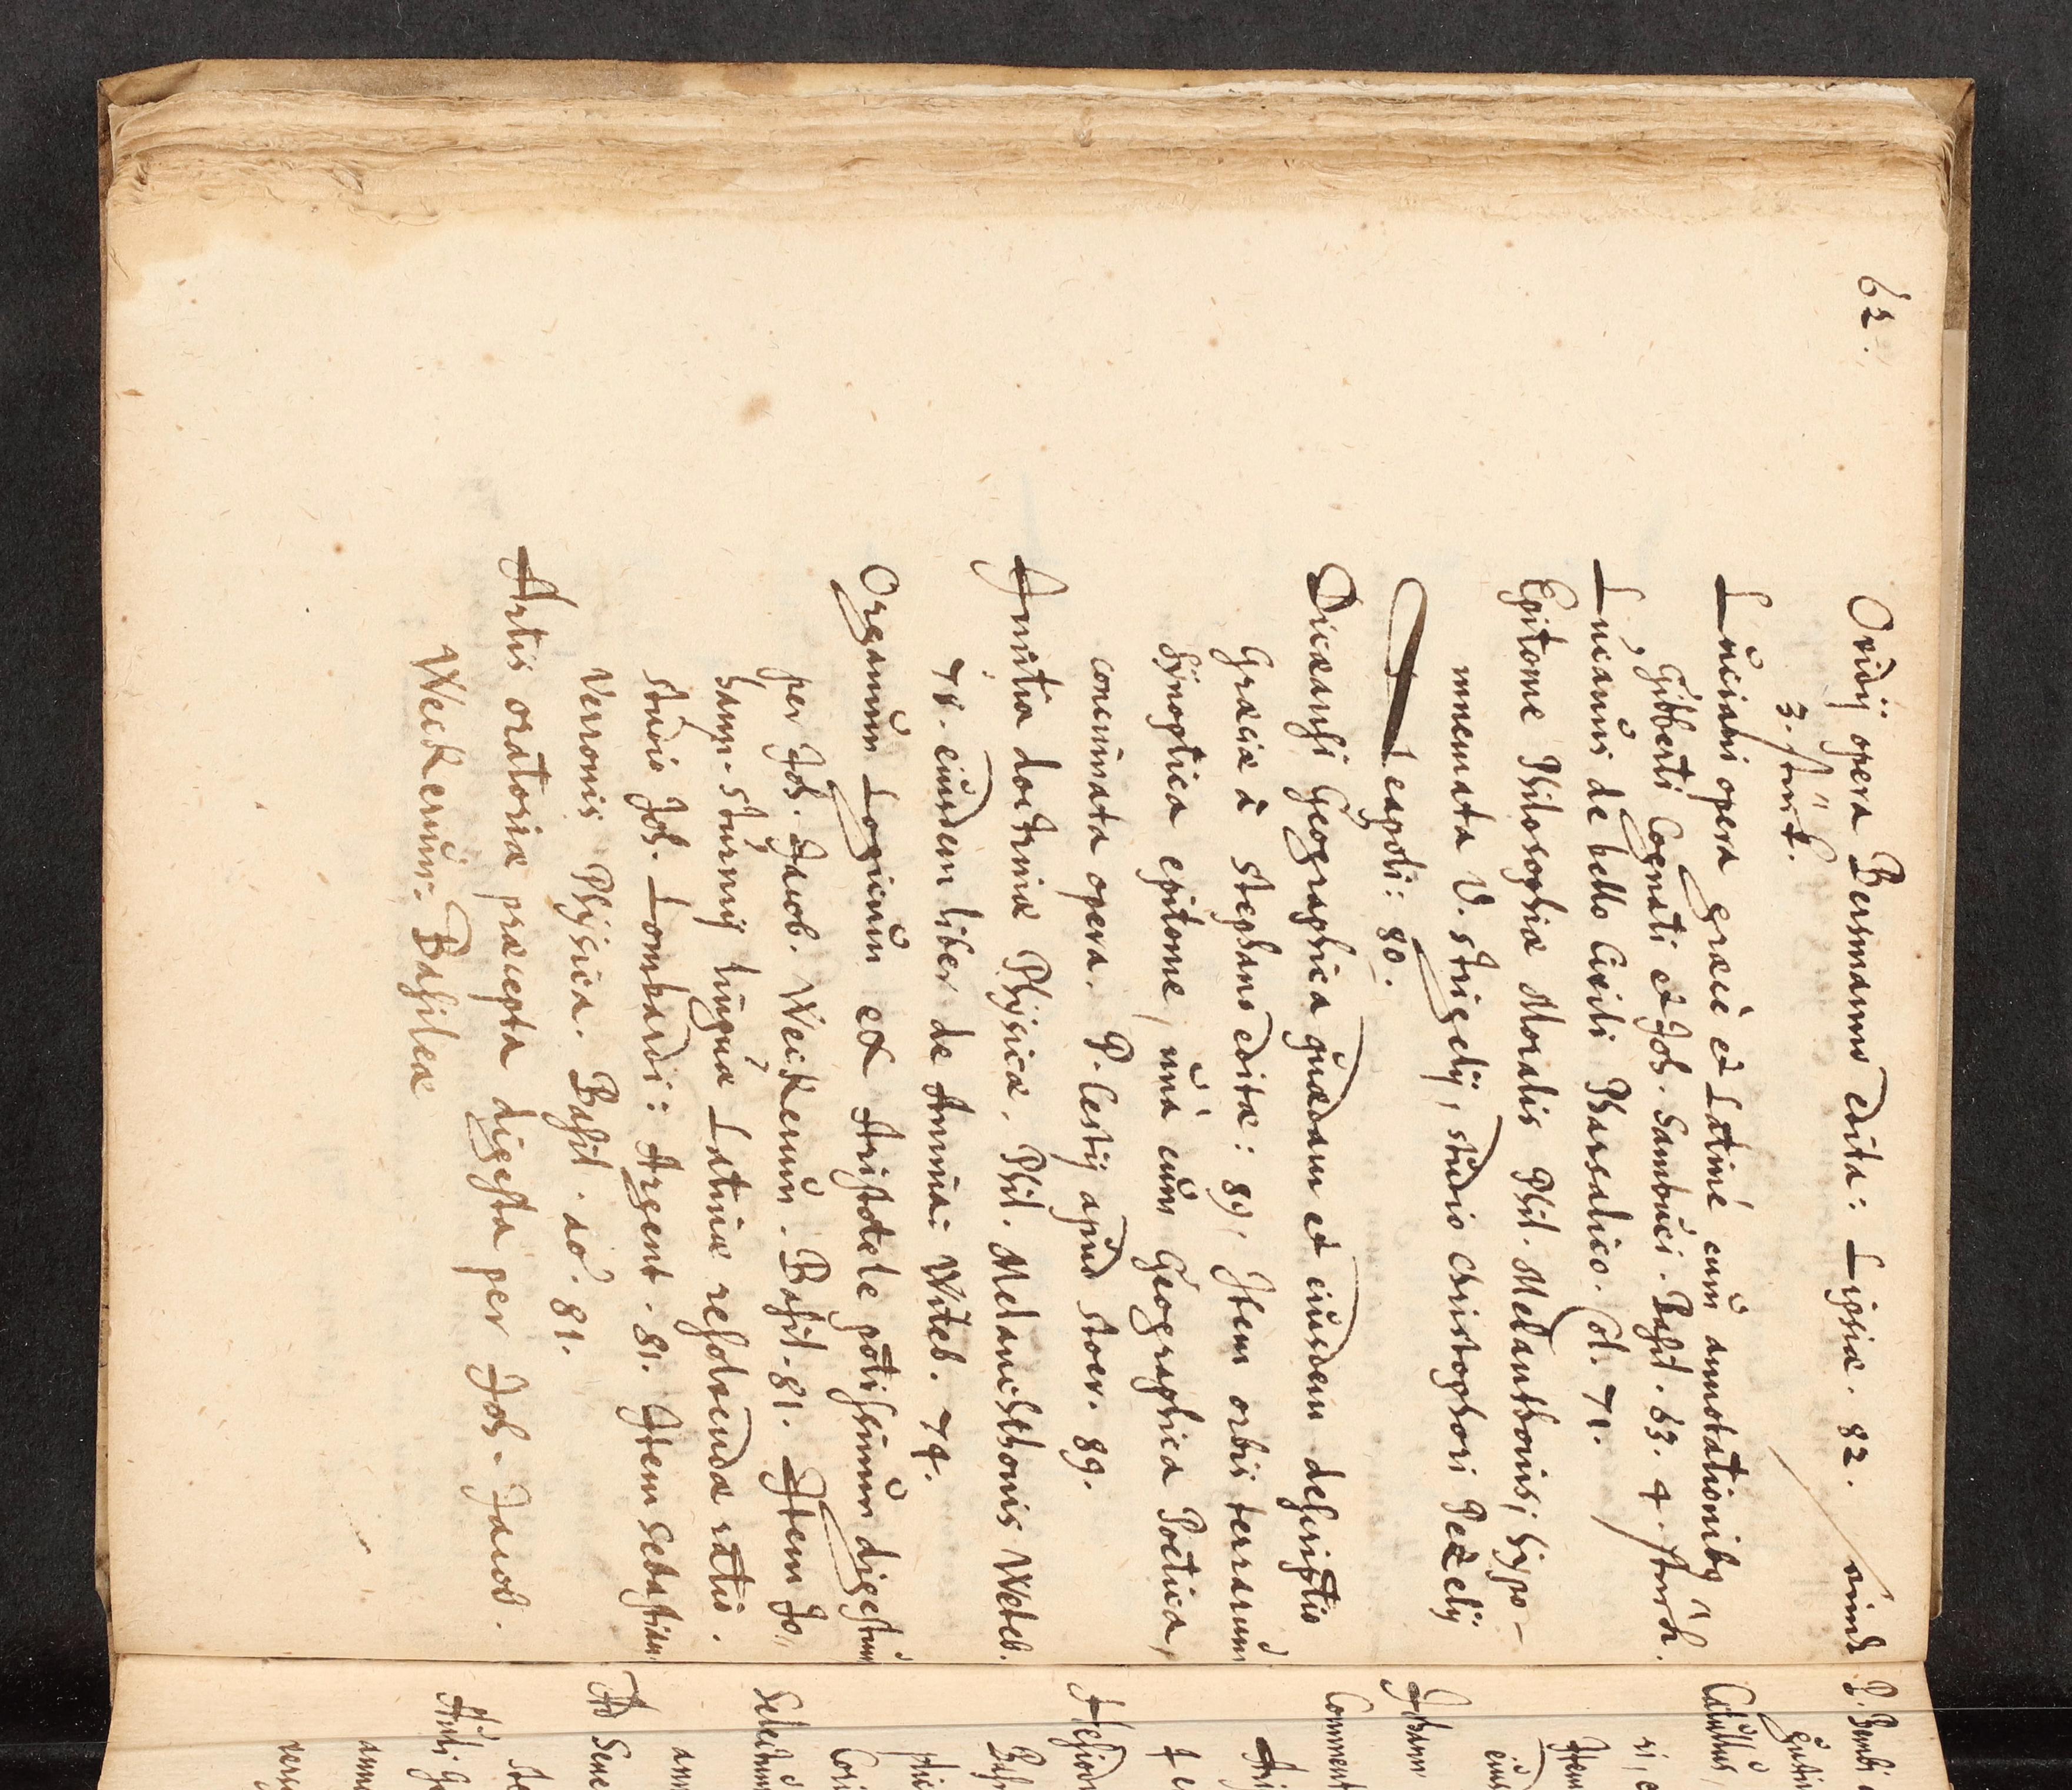 62.
Ovidij opera Bersmanno edita: Lipsiæ. 82. sind
3. stuck.
Luciani opera græcè et Latinè cum annotationibus
Gibberti Cognati et Joh. Sambuci. Basil. 63. 4. stuck.
Lucanus de bello Civili Pharsalico. Col. 71.
Epitome Philosophiæ Moralis Phil. Melanthonis, hypo-
mnemata V. Strigelij, studio Christophori Pezelij
Neapoli: 80.
Dicæarchi Geographica quædam et eiusdem descriptio
Græciæ à Stephano edita: 89, Item orbis terrarum
synoptica epitome, unà cum Geographica Poetica,
concinnata opera. P. Cestij apud Stoer. 89.
Initia doctrinæ Physicæ. Phil. Melanchthonis Witeb.
78. eiusdem liber de Anima: Witeb. 74.
Organum Logicum ex Aristotele potissimum digestum
per Joh. Jacob. Weckerum. Basil. 81. Item Jo,,
hann. Sturmij linguæ Latinæ resolvendæ ratio.
studio Joh. Lombardi: Argent. 81. Item Sebastian
Verronis Physica. Basil. aō. 81.
Artis oratoriæ præcepta digesta per Joh. Jacob.
Weckerum. Basileæ
P. Bembi
Catullus,
ri, e
Item
eius
Johann
Comment
Hesiod
Basi
Selectum
ann
Ad Sene
Auli Ge
anno